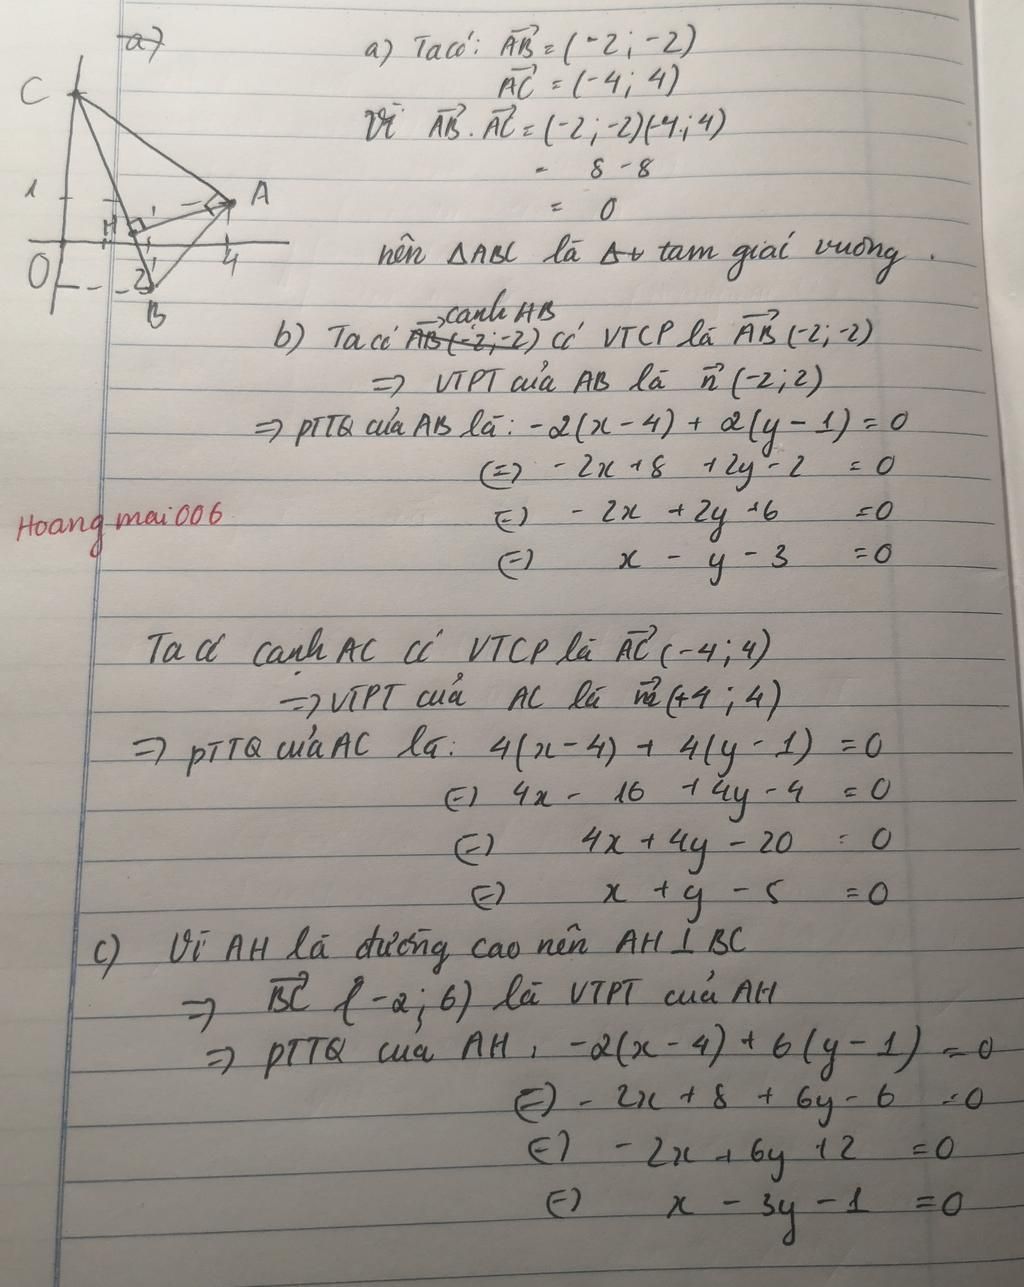 a)
C
1
H
A
O
2
4
B
a) Ta có: AB = (-2; -2)
AC = (-4; 4)
Vì AB. AC = (-2; -2)(-4; 4)
= 8 - 8
= 0
nên ΔABC là Δv tam giác vuông.
b) Ta có AB(-2; -2) cạnh AB có VTCP là AB (-2; -2)
=> VTPT của AB là n (-2; 2)
=> PTTQ của AB là: -2(x - 4) + 2(y - 1) = 0
(=) - 2x + 8 + 2y - 2 = 0
(=) - 2x + 2y + 6 = 0
(=) x - y - 3 = 0
Hoang mai 006
Ta có cạnh AC có VTCP là AC (-4; 4)
=> VTPT của AC là n2 (+4; 4)
=> PTTQ của AC là: 4(x - 4) + 4(y - 1) = 0
(=) 4x - 16 + 4y - 4 = 0
(=) 4x + 4y - 20 = 0
(=) x + y - 5 = 0
c) Vì AH là đường cao nên AH ⊥ BC
=> BC (-2; 6) là VTPT của AH
=> PTTQ của AH: -2(x - 4) + 6(y - 1) = 0
(=) - 2x + 8 + 6y - 6 = 0
(=) - 2x + 6y + 2 = 0
(=) x - 3y - 1 = 0